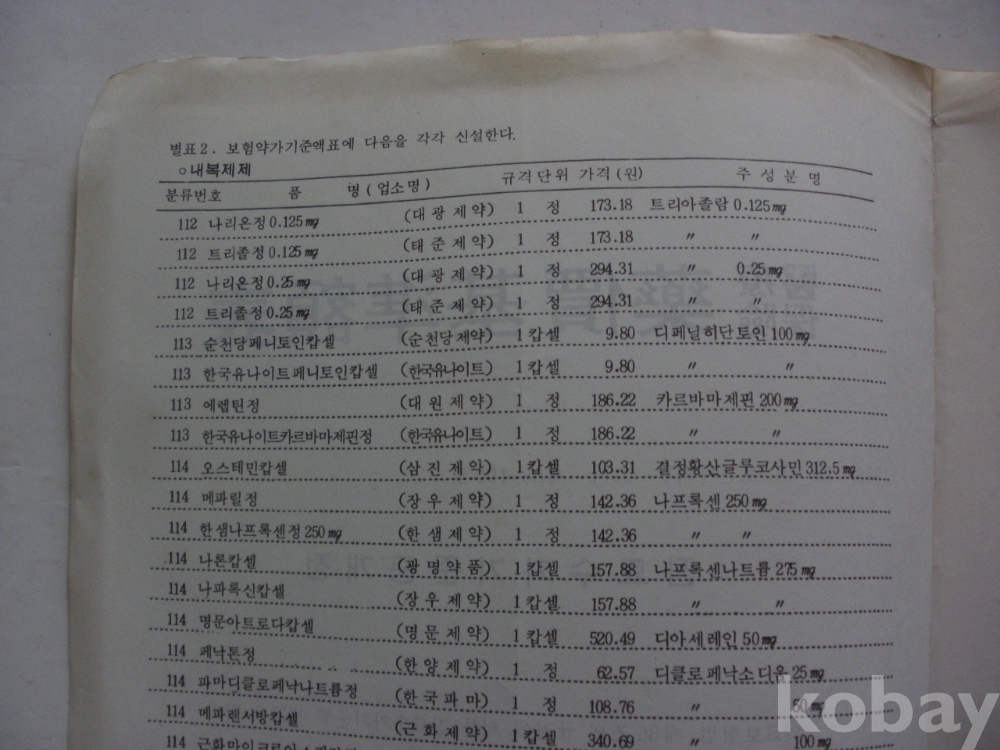 별표 2. 보험약가기준액표에 다음을 각각 신설한다.
○내복제제
분류번호 품 명(업소명) 규격단위 가격(원) 주성분명
112 나리온정0.125mg (대광제약) 1 정 173.18 트리아졸람 0.125mg
112 트리졸정0.125mg (태준제약) 1 정 173.18 〃 〃
112 나리온정0.25mg (대광제약) 1 정 294.31 〃 0.25mg
112 트리졸정0.25mg (태준제약) 1 정 294.31 〃 〃
113 순천당페니토인캅셀 (순천당제약) 1캅셀 9.80 디페닐히단토인 100mg
113 한국유나이트페니토인캅셀 (한국유나이트) 1캅셀 9.80 〃 〃
113 에렙틴정 (대원제약) 1 정 186.22 카르바마제핀 200mg
113 한국유나이트카르바마제핀정 (한국유나이트) 1 정 186.22 〃 〃
114 오스테민캅셀 (삼진제약) 1캅셀 103.31 결정황산글루코사민 312.5mg
114 메파릴정 (장우제약) 1 정 142.36 나프록센 250mg
114 한샘나프록센정250mg (한샘제약) 1 정 142.36 〃 〃
114 나론캅셀 (광명약품) 1캅셀 157.88 나프록센나트륨 275mg
114 나파록신캅셀 (장우제약) 1캅셀 157.88 〃 〃
114 명문아트로다캅셀 (명문제약) 1캅셀 520.49 디아세레인 50mg
114 페낙톤정 (한양제약) 1 정 62.57 디클로페낙소디움 25mg
114 파마디클로페낙나트륨정 (한국파마) 1 정 108.76 〃 50mg
114 메파렌서방캅셀 (근화제약) 1캅셀 340.69 〃 100mg
114
kobay